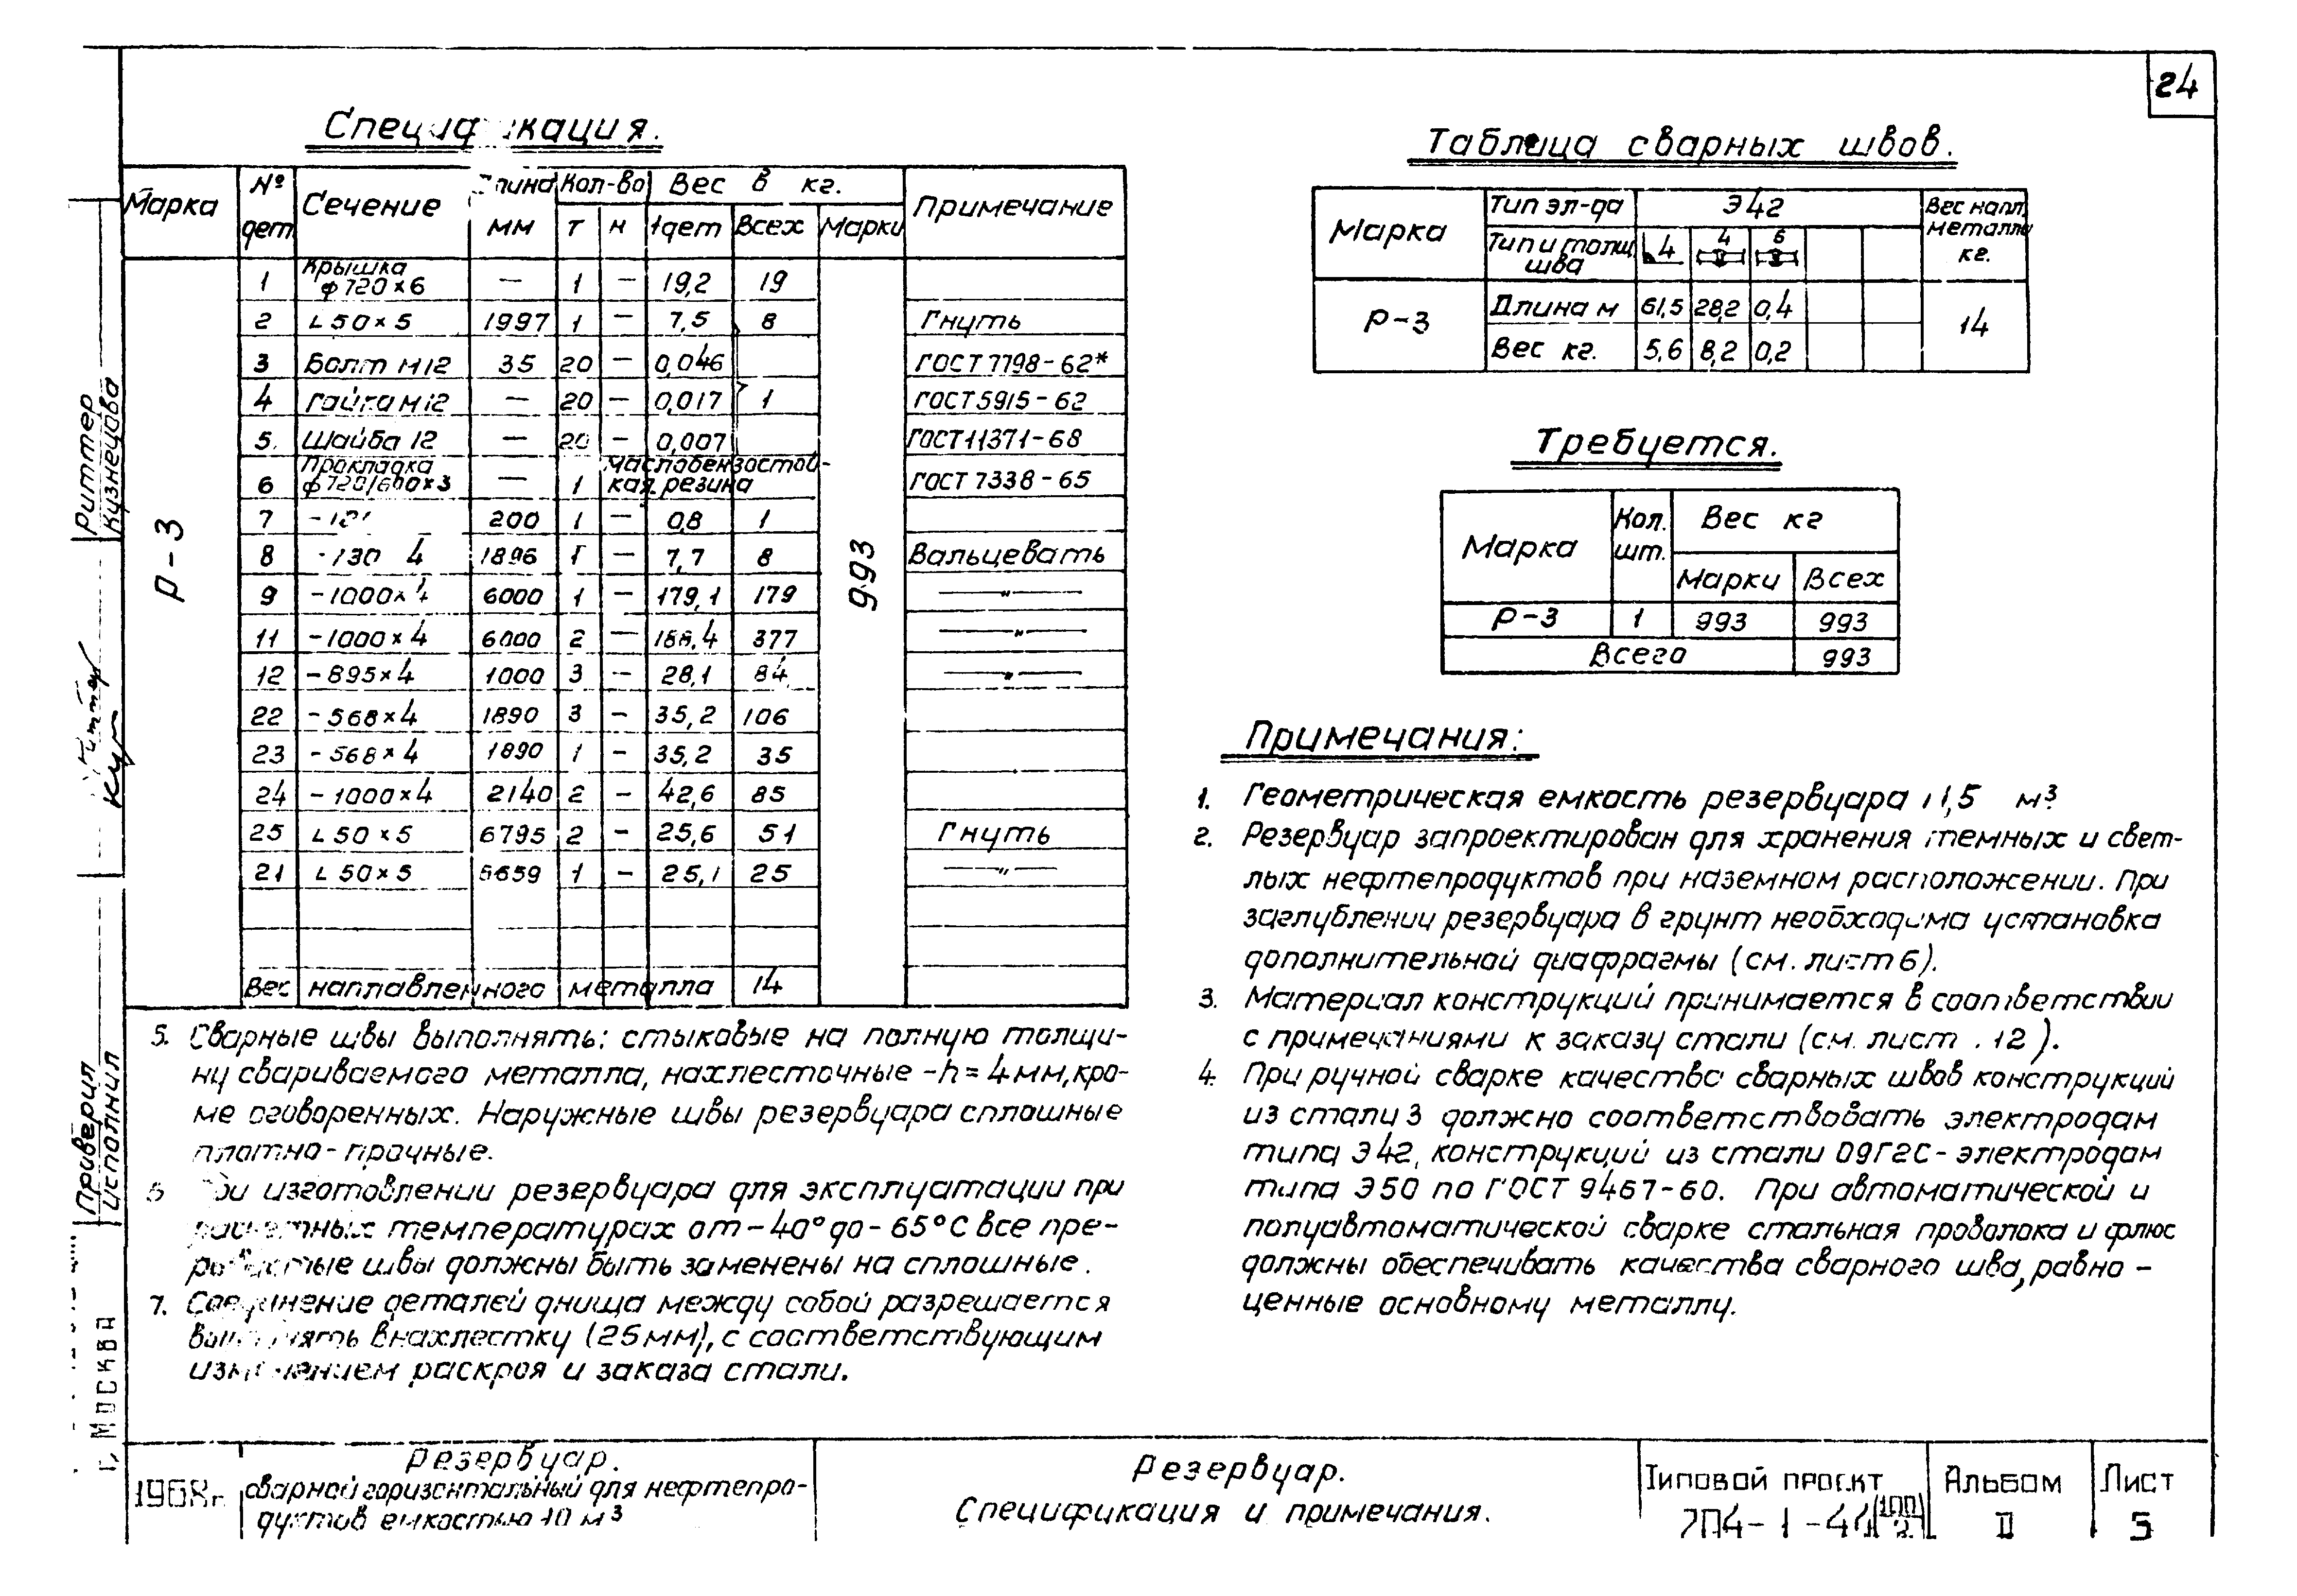 24
Спецификация.
Марка № дет. Сечение Длина мм Кол-во Вес в кг. Примечание
т н 1 дет Всех Марки
Р-3 993
1 Крышка ф720×6 — 1 — 19,2 19
2 L 50×5 1997 1 — 7,5 8 Гнуть
3 Болт М12 35 20 — 0,046 ГОСТ 7798-62*
4 Гайка М12 — 20 — 0,017 1 ГОСТ 5915-62
5. Шайба 12 — 20 — 0,007 ГОСТ 11371-68
6 Прокладка ф720/600×3 — 1 маслобензостой-кая резина ГОСТ 7338-65
7 200 1 — 0,8 1
8 -130 4 1896 1 — 7,7 8 Вальцевать
9 -1000×4 6000 1 — 179,1 179 —"—
11 -1000×4 6000 2 — 188,4 377 —"—
12 -895×4 1000 3 — 28,1 84 —"—
22 -568×4 1890 3 — 35,2 106
23 -568×4 1890 1 — 35,2 35
24 -1000×4 2140 2 — 42,6 85
25 L 50×5 6795 2 — 25,6 51 Гнуть
21 L 50×5 6659 1 — 25,1 25 —"—
Вес наплавленного металла 14
Таблица сварных швов.
Марка Тип эл-да Э42 Вес напл. металла кг.
Тип и толщ. шва 4 4 6
Р-3 Длина м 61,5 28,2 0,4 14
Вес кг. 5,6 8,2 0,2
Требуется.
Марка Кол. шт. Вес кг
Марки Всех
Р-3 1 993 993
Всего 993
Примечания:
1. Геометрическая емкость резервуара 11,5 м³.
2. Резервуар запроектирован для хранения темных и свет-
лых нефтепродуктов при наземном расположении. При
заглублении резервуара в грунт необходима установка
дополнительной диафрагмы (см. лист 6).
3. Материал конструкций принимается в соответствии
с примечаниями к заказу стали (см. лист . 12 ).
4. При ручной сварке качества сварных швов конструкций
из стали 3 должно соответствовать электродам
типа Э42, конструкций из стали 09Г2С - электродам
типа Э50 по ГОСТ 9467-60. При автоматической и
полуавтоматической сварке стальная проволока и флюс
должны обеспечивать качества сварного шва, равно -
ценные основному металлу.
5. Сварные швы выполнять: стыковые на полную толщи-
ну свариваемого металла, нахлесточные - h = 4 мм, кро-
ме оговоренных. Наружные швы резервуара сплошные
плотно-прочные.
6 При изготовлении резервуара для эксплуатации при
расчетных температурах от -40° до - 65°С все пре-
рывистые швы должны быть заменены на сплошные.
7. Соединение деталей днища между собой разрешается
выполнять внахлестку (25 мм), с соответствующим
изменением раскроя и заказа стали.
Риттер
Кузнецова
Проверил
Исполнил
г. Москва
1968г.
Резервуар.
сварной горизонтальный для нефтепро-
дуктов емкостью 10 м³
Резервуар.
Спецификация и примечания.
Типовой проект
704-1-44
Альбом
II
Лист
5